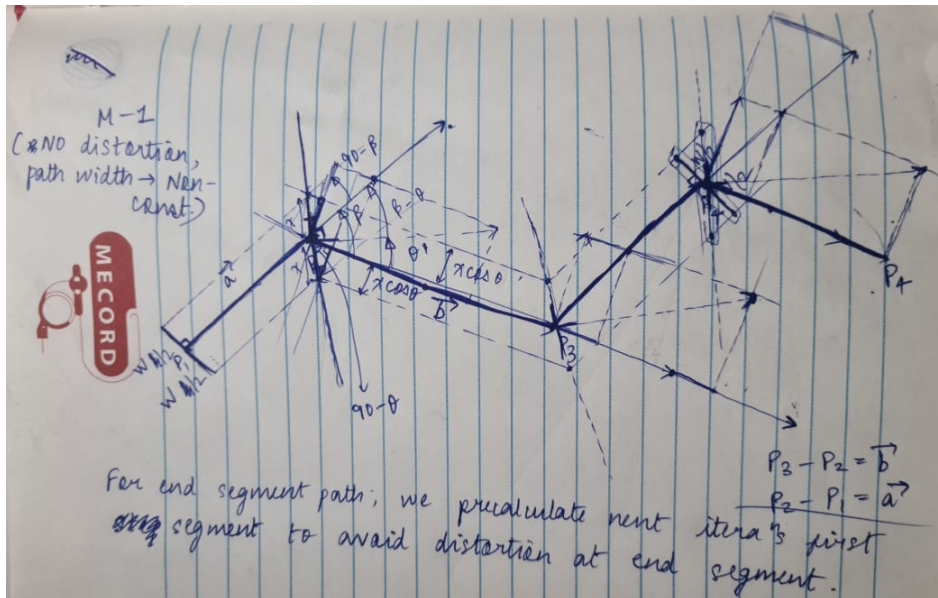 M-1
(NO distortion,
path width → Non-
const.)
MECORD
a⃗
W/2
P₁
W/2
90-β
β
β-θ
θ
xcosθ
xcosθ
b⃗
90-θ
P3
P4
P3 - P2 = b⃗
P2 - P1 = a⃗
For end segment path, we precalculate nent itera's first
segment to avoid distortion at end segment.